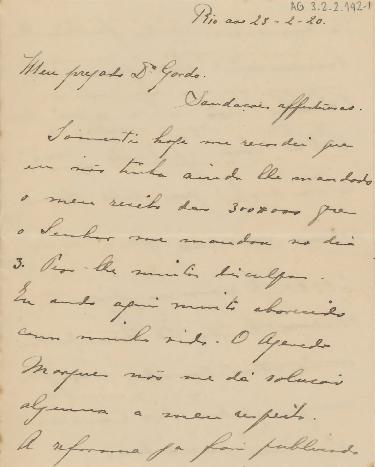 AG 3.2.2.142-1
Rio aos 23-2-20.
Meu presado Dr. Gordo.
Saudações affectuosas.
Somente hoje me recordei que
eu não tinha ainda lhe mandado
o meu recibo dos 300#000 que
o Senhor me mandou no dia
3. Peço-lhe muitas disculpas.
Eu ando aqui muito aborrecido
com minha vida. O Azevedo
Marques não me dá solução
alguma a meu respeito.
A reforma ja foi publicada